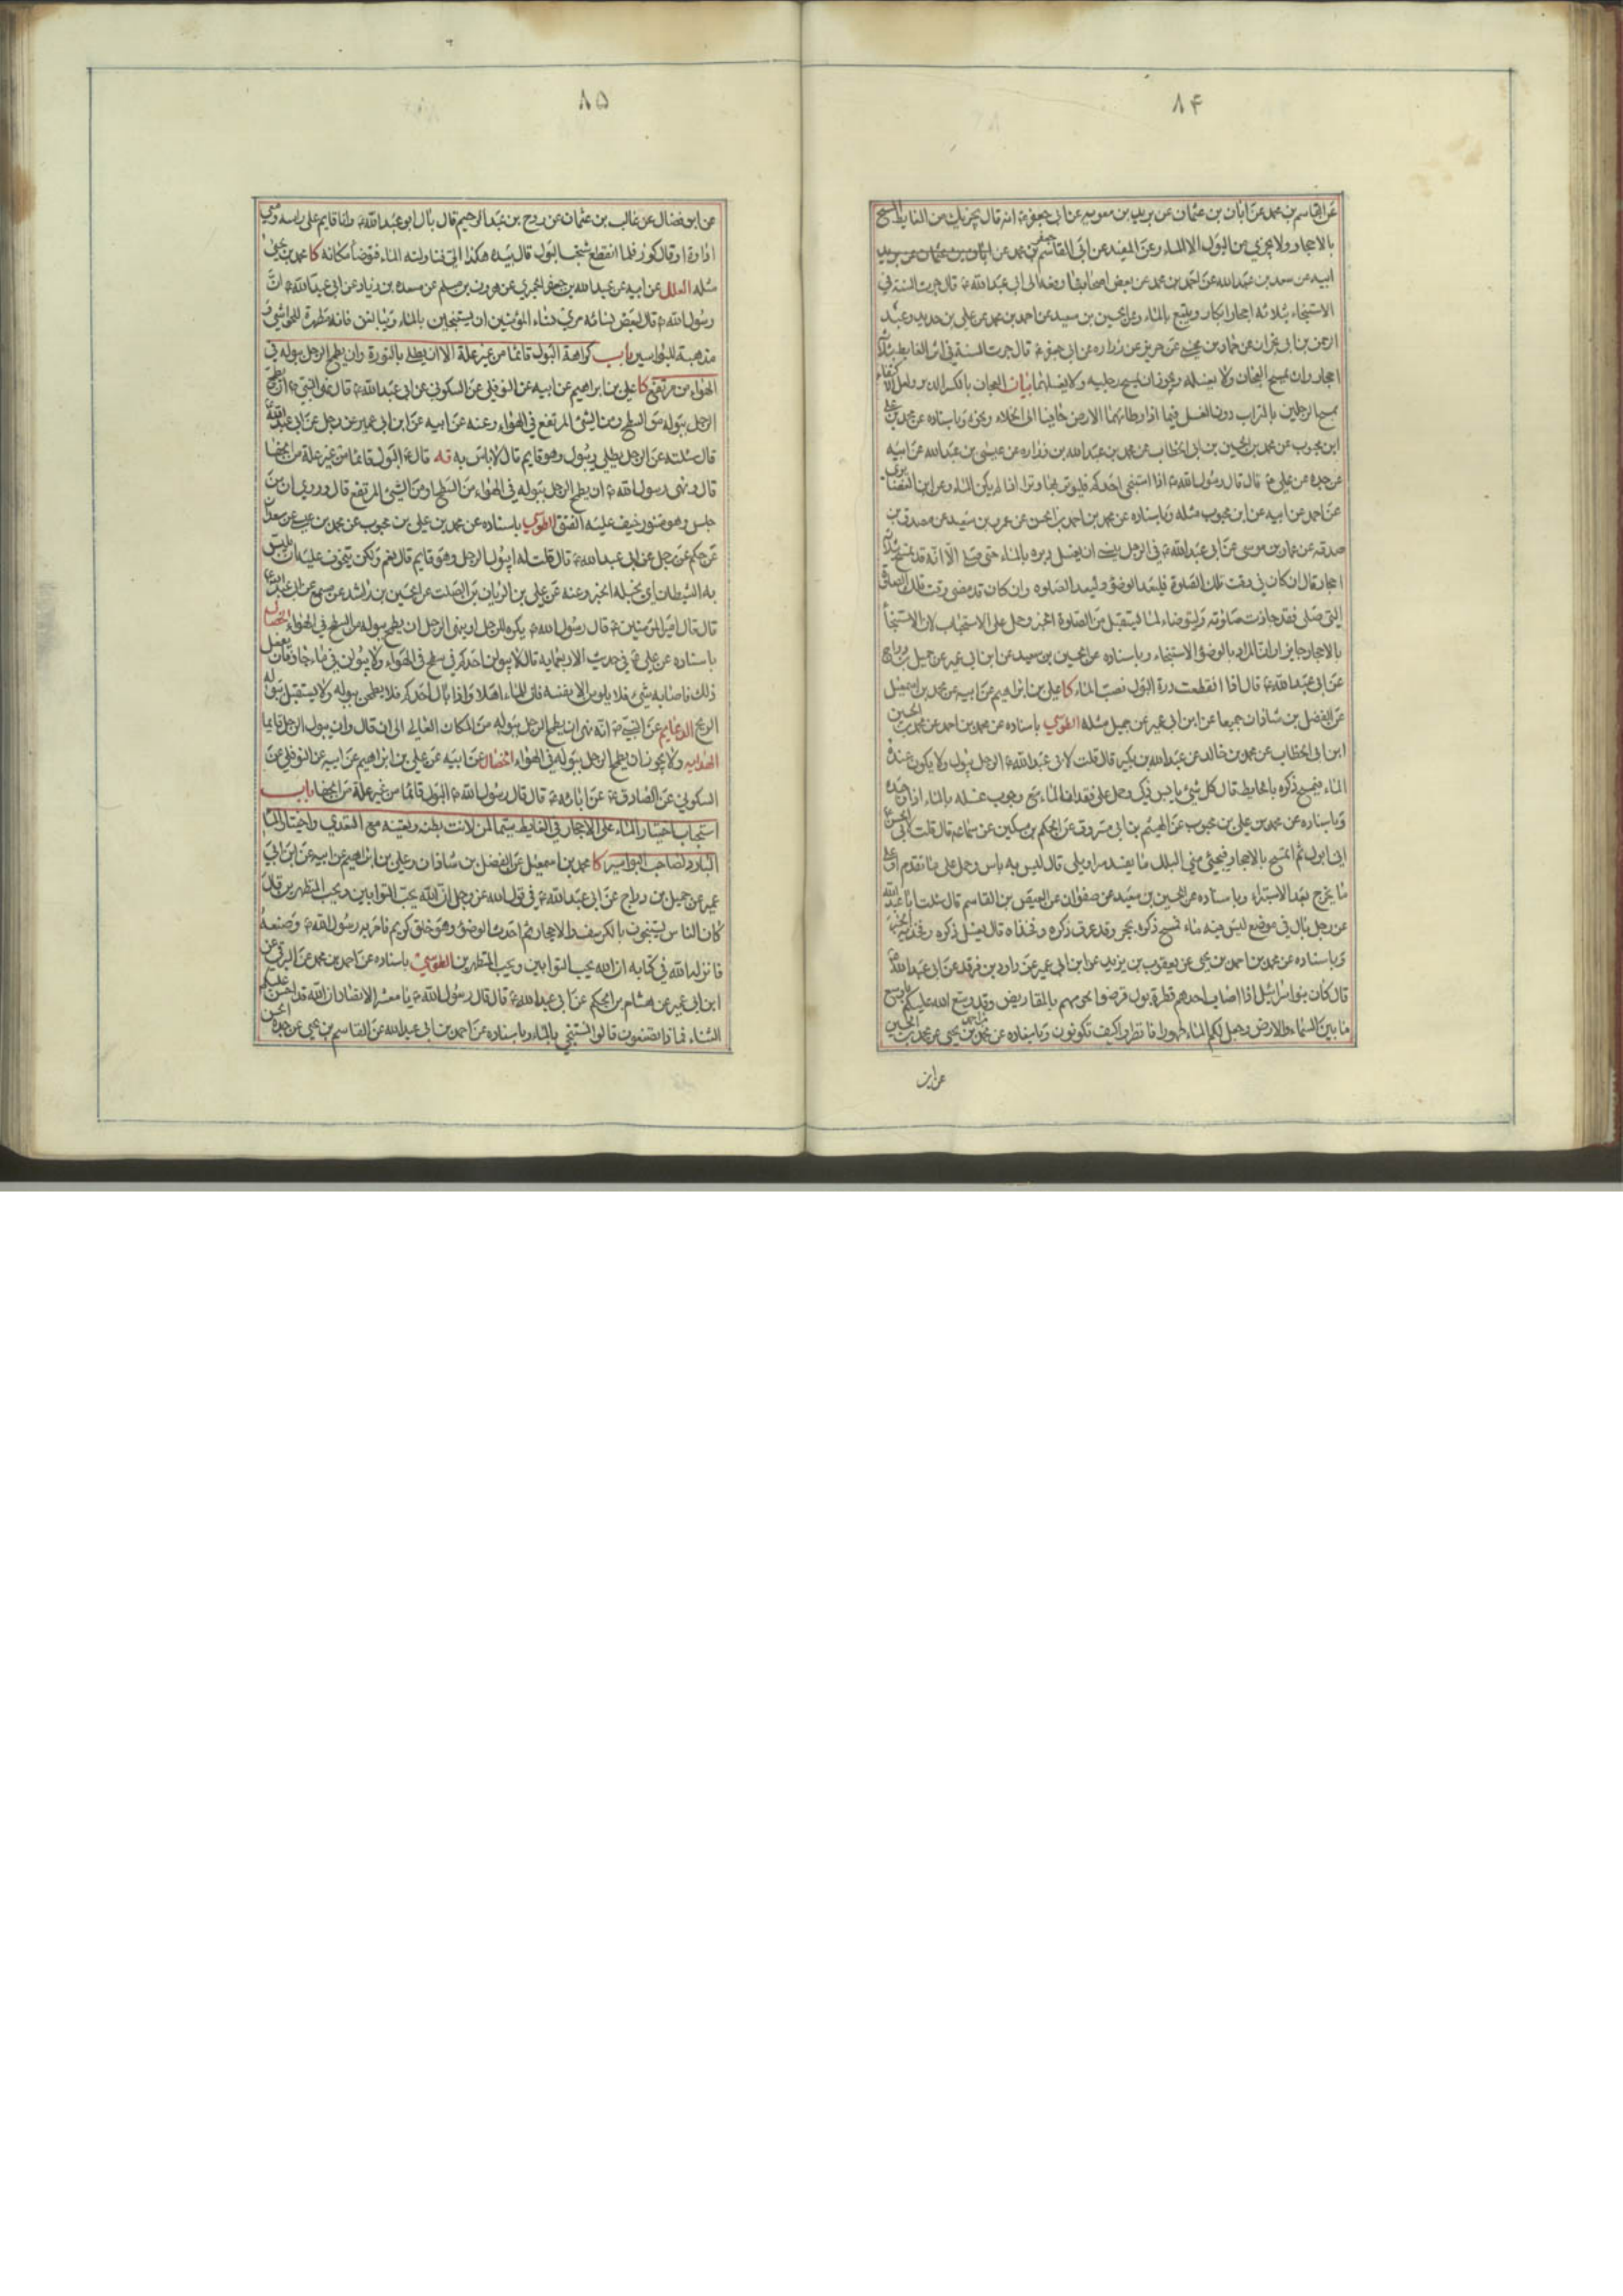 ۸۴
عن القاسم بن محمد عن ابان بن عثمان عن بريد بن معويه عن ابى جعفر ع انه قال يجزيك من الغايط المسح
بالاحجار ولا يجزي من البول الا الماء وعن المفيد عن ابى القاسم جعفر بن محمد عن
ابيه عن سعد بن عبد الله عن احمد بن محمد عن بعض اصحابنا رفعه الى ابى عبد الله ع قال جرت السنة في
الاستنجاء بثلاثه احجار ابكار ويتبع بالماء وعن الحسين بن سعيد عن احمد بن محمد عن على بن حديد وعبد
الرحمن بن ابى نجران عن حماد بن عيسى عن حريز عن زراره عن ابى جعفر ع قال جرت السنة في اثر الغايط بثلاثة
احجار وان يمسح العجان ولا يغسله ويجوز ان يمسح رجليه ولا يغسلهما بيان العجان بالكسر الدبر ولعل
مسح الرجلين بالتراب دون الغسل فيما اذا وطا بهما الارض حافيا الى الخلاء ونحوه وباسناده عن محمد بن على
ابن محبوب عن محمد بن الحسين بن ابى الخطاب عن محمد بن عبد الله بن زراره عن عيسى بن عبد الله عن ابيه
عن جده عن على ع قال قال رسول الله ص اذا استنجى احدكم فليوتر بها وترا اذا لم يكن الماء وعن ابن
عن احمد عن ابيه عن ابن محبوب مثله وباسناده عن محمد بن احمد بن الحسن عن عمرو بن سعيد عن مصدق بن
صدقه عن عمار بن موسى عن ابى عبد الله ع في الرجل ينسى ان يغسل دبره بالماء حتى صلى الا انه قد تمسح بثلاثة
احجار قال ان كان في وقت تلك الصلوة فليعد الوضوء وليعد الصلوه وان كان قد مضى وقت تلك الصلوة
التى صلى فقد جازت صلوته وليتوضاء لما يستقبل من الصلوة الخبر وحمل على الاستحباب لان الاستنجاء
بالاحجار جايز او ان المراد بالوضوء الاستنجاء وباسناده عن الحسين بن سعيد عن ابن ابى عمير عن جميل بن دراج
عن ابى عبد الله ع قال اذا انقطعت درة البول فصب الماء كا على بن ابراهيم عن ابيه عن محمد بن اسمعيل
عن الفضل بن شاذان جميعا عن ابن ابى عمير عن جميل مثله الطوسي باسناده عن محمد بن احمد عن محمد بن الحسين
ابن ابى الخطاب عن محمد بن خالد عن عبد الله بن بكير قال قلت لابى عبد الله ع الرجل يبول ولا يكون عنده
الماء فيمسح ذكره بالحايط قال كل شئ يابس ذكى وحمل على فقد الماء مع وجوب غسله بالماء اذا وجده
وباسناده عن محمد بن على بن محبوب عن الهيثم بن ابى مسروق عن الحكم بن مسكين عن سماعه قال قلت لابى الحسن ع
انى ابول ثم اتمسح بالاحجار فيجئ منى البلل ما يفسد سراويلى قال ليس به باس وحمل على ما تقدم او على
ما يخرج بعد الاستبراء وباسناده عن الحسين بن سعيد عن صفوان عن العيص بن القاسم قال سئلت ابا عبد الله
عن رجل بال في موضع ليس فيه ماء فمسح ذكره بحجر وقد عرق ذكره وفخذاه قال يغسل ذكره وفخذيه الخبر
وباسناده عن محمد بن احمد بن يحيى عن يعقوب بن يزيد عن ابن ابى عمير عن داود بن فرقد عن ابى عبد الله ع
قال كان بنو اسرائيل اذا اصاب احدهم قطرة بول قرضوا لحومهم بالمقاريض وقد وسع الله عليكم باوسع
ما بين السماء والارض وجعل لكم الماء طهورا فانظروا كيف تكونون وباسناده عن محمد بن احمد بن يحيى عن محمد بن الحسين
عن ابن
۸۵
عن ابن فضال عن غالب بن عثمان عن روح بن عبد الرحيم قال بال ابو عبد الله ع وانا قايم على راسه ومعى
اداوة او قال كوز فلما انقطع شخب البول قال بيده هكذا الى فناولته الماء فتوضأ مكانه كا محمد بن يحيى
مثله العلل عن ابيه عن عبد الله بن جعفر الحميري عن هرون بن مسلم عن مسعده بن زياد عن ابى عبد الله ع ان
رسول الله ص قال لبعض نسائه مرى نساء المؤمنين ان يستنجين بالماء ويبالغن فانه مطهرة للحواشى و
مذهبة للبواسير باب كراهة البول قائما من غير علة الا ان يطلى بالنورة وان يطمح الرجل ببوله في
الهواء من مرتفع كا على بن ابراهيم عن ابيه عن النوفلى عن السكونى عن ابى عبد الله ع قال نهى النبي ص ان يطمح
الرجل ببوله من السطح ومن الشئ المرتفع في الهواء وعنه عن ابيه عن ابن ابى عمير عن رجل عن ابى عبد الله ع
قال سئلته عن الرجل يطلى ويبول وهو قايم قال لا باس به قه قال ع البول قائما من غير علة من الجفا
قال ونهى رسول الله ص ان يطمح الرجل ببوله في الهواء من السطح او من الشئ المرتفع قال وروى ان من
جلس وهو متنور خيف عليه الفتق الطوسي باسناده عن محمد بن على بن محبوب عن محمد بن عيسى عن سعدان
عن حكم عن رجل عن ابى عبد الله ع قال قلت له ايبول الرجل وهو قايم قال نعم ولكن يتخوف عليه ان يلبس
به الشيطان اى يخبله الخبر وعنه عن على بن الريان بن الصلت عن الحسين بن راشد عن مسمع عن ابى عبد الله ع
قال قال امير المؤمنين ع قال رسول الله ص يكره للرجل او ينهى الرجل ان يطمح ببوله من السطح في الهواء الخصال
باسناده عن على ع في حديث الاربعمايه قال لا يبولن احدكم في سطح في الهواء ولا يبولن في ماء جار فان فعل
ذلك فاصابه شئ فلا يلومن الا نفسه فان للماء اهلا واذا بال احدكم فلا يطمحن ببوله ولا يستقبل ببوله
الريح الدعايم عن النبي ص انه نهى ان يطمح الرجل ببوله من المكان العالى الى ان قال وان يبول الرجل قايما
الهدايه ولا يجوز ان يطمح الرجل ببوله في الهواء الخصال عن ابيه عن على بن ابراهيم عن ابيه عن النوفلى عن
السكونى عن الصادق ع عن ابائه ع قال قال رسول الله ص البول قائما من غير علة من الجفا باب
استحباب اختيار الماء على الاحجار في الغايط سيما لمن لانت بطنه وتعينه مع التعدي واختيار الماء
البارد لصاحب البواسير كا محمد بن اسمعيل عن الفضل بن شاذان وعلى بن ابراهيم عن ابيه عن ابن ابى
عمير عن جميل بن دراج عن ابى عبد الله ع في قول الله عز وجل ان الله يحب التوابين ويحب المتطهرين قال
كان الناس يستنجون بالكرسف والاحجار ثم احدث الوضوء وهو خلق كريم فامر به رسول الله ص وصنعه
فانزل الله في كتابه ان الله يحب التوابين ويحب المتطهرين الطوسي باسناده عن احمد بن محمد عن البرقى عن
ابن ابى عمير عن هشام بن الحكم عن ابى عبد الله ع قال قال رسول الله ص يا معشر الانصار ان الله قد احسن عليكم
الثناء فماذا تصنعون قالوا نستنجي بالماء وباسناده عن احمد بن ابى عبد الله عن القاسم بن يحيى عن جده الحسن